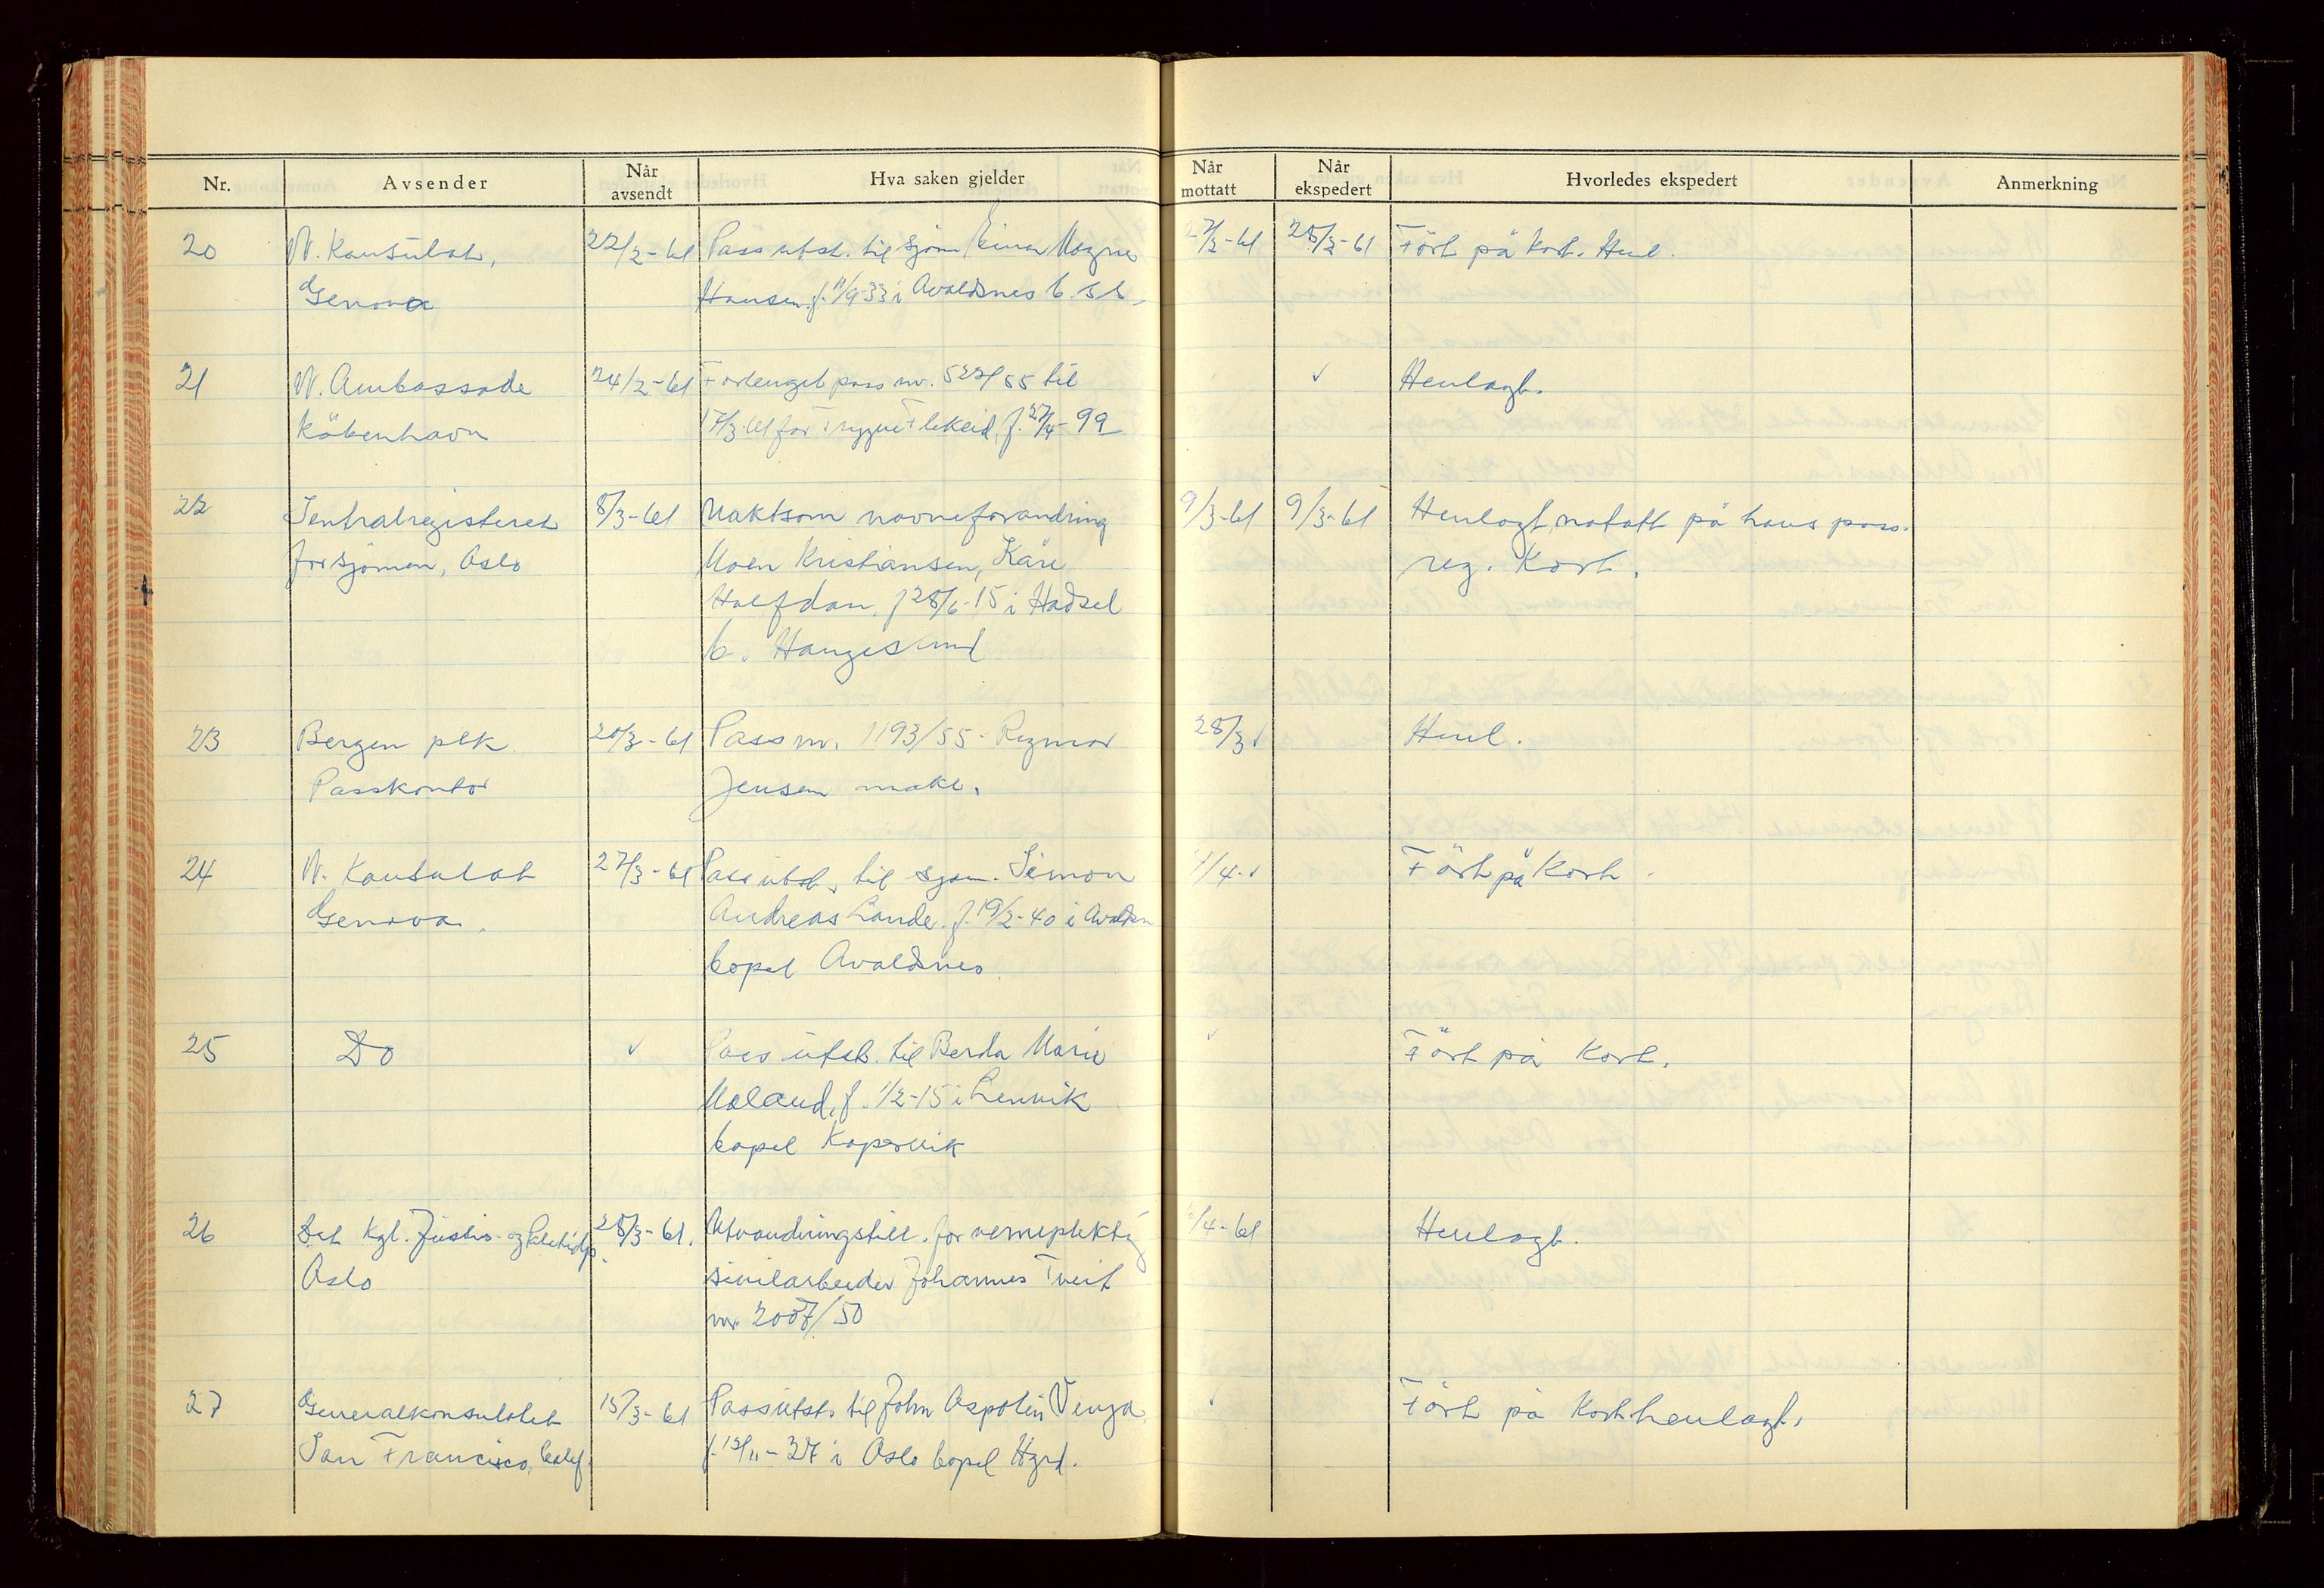 Nr.
Avsender
Når avsendt
Hva saken gjelder
Når mottatt
Når ekspedert
Hvorledes ekspedert
Anmerkning
20 N. Konsulat, 22/2-61 Pass utst. til sjøm. Einar Magne 27/2-61 28/2-61 Ført på kort. Henl.
Genova Hansen, f. 11/9-33 i Avaldsnes b. s.s.
21 N. Ambassade 24/2-61 Forlenget pass nr. 522/55 til ✓ Henlagt.
København 17/3-61 for Trygve f. 27/4-99
22 Sentralregisteret 8/3-61 navneforandring 9/3-61 9/3-61 Henlagt, notatt på hans pass-
for sjømen, Oslo Moen Kristiansen, Kåre reg. kort.
Halfdan, f 28/6-15 i Hadsel
b. Haugesund
23 Bergen plk. 20/3-61 Pass nr. 1193/55 - Ragmor 28/3 ✓ Henl.
Passkontor Jensen makl.
24 N. Konsulat 27/3-61 Pass utst. til sjøm. Simon 1/4-✓ Ført på kort.
Genova. Andreas Lande. f. 19/2-40 i Avaldsn
bopel Avaldsnes.
25 Do ✓ Pass utst. til Berda Marie ✓ Ført på kort.
Moland, f. 1/2-15 i Lenvik
bopel Kopervik
26 Det Kgl. Justis- og Politidp. 28/3-61. Utvandringstill. for verneplektig 6/4-61 Henlagt.
Oslo sivilarbeider Johannes Tveit
nr. 2007/50
27 Generalkonsulatet 15/3-61 Pass utst. til John Aspolin Venga ✓ Ført på kort henlagt.
San Francisco, Calif. f. 12/11-37 i Oslo bopel Hgsd.